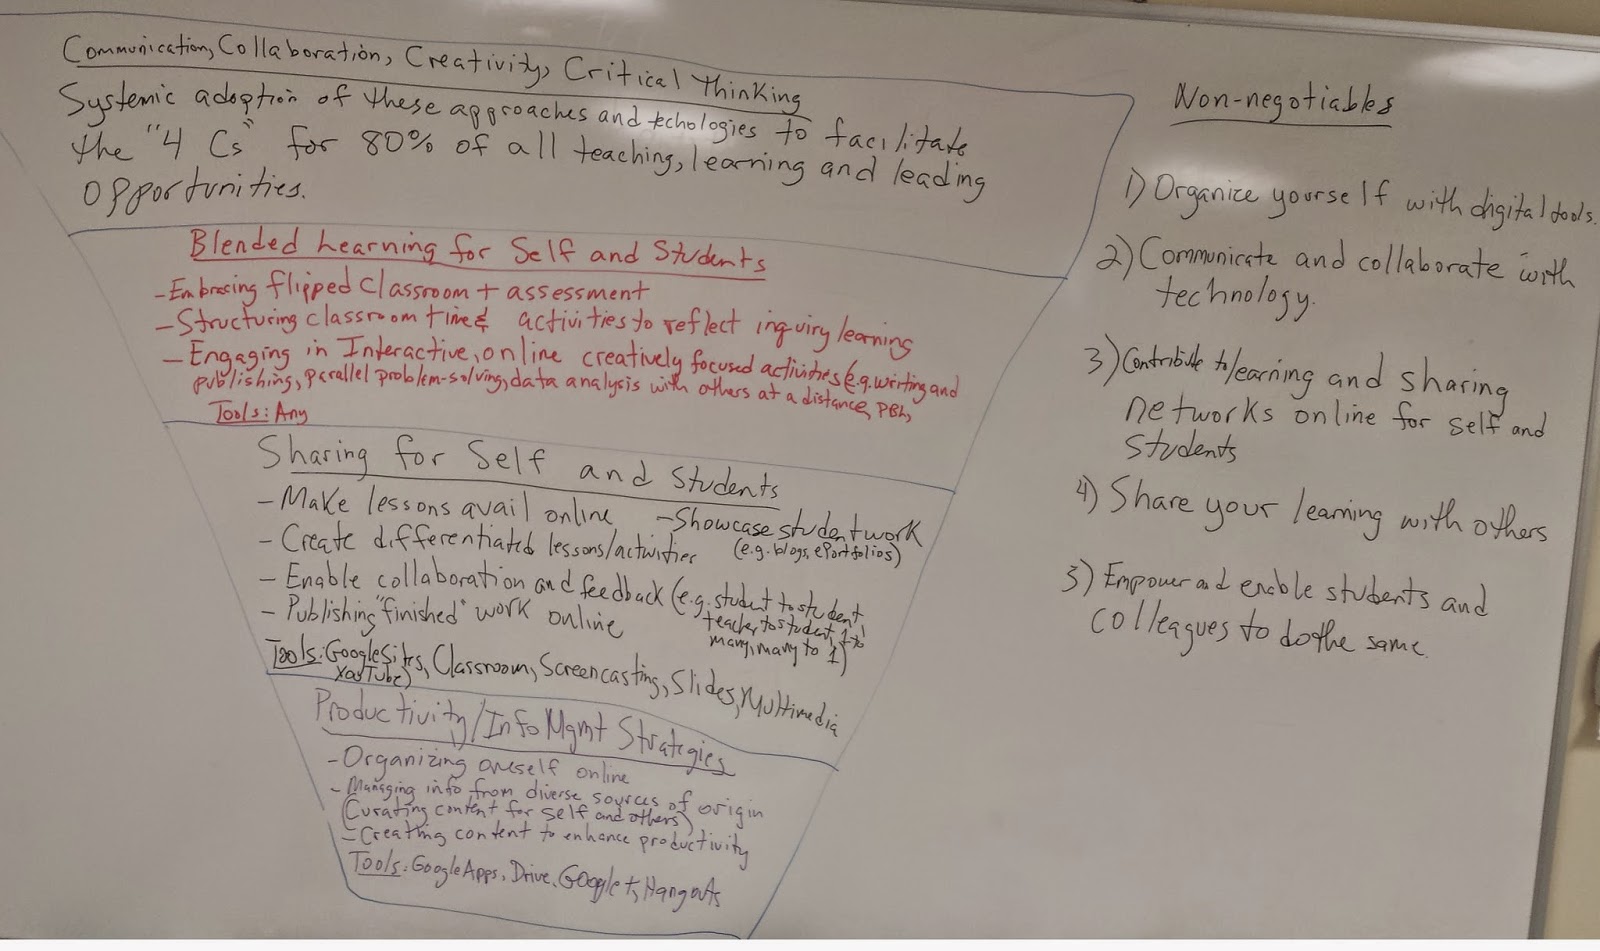 Communication, Collaboration, Creativity, Critical Thinking
Systemic adoption of these approaches and techologies to facilitate
the "4 Cs" for 80% of all teaching, learning and leading
opportunities.
Blended Learning for Self and Students
- Embracing flipped classroom + assessment
- Structuring classroom time & activities to reflect inquiry learning
- Engaging in Interactive, online creatively focused activities (e.g. writing and
publishing, parallel problem-solving, data analysis with others at a distance, PBL,
Tools: Any
Sharing for Self and Students
- Make lessons avail online
- Showcase student work
(e.g. blogs, ePortfolios)
- Create differentiated lessons/activities
- Enable collaboration and feedback (e.g. student to student,
teacher to student, 1 to
many, many to 1)
- Publishing "finished" work online
Tools: GoogleSites, Classroom, Screencasting, Slides, Multimedia
YouTube)
Productivity/Info Mgmt Strategies
- Organizing oneself online
- Managing info from diverse sources of origin
(Curating content for self and others)
- Creating content to enhance productivity
Tools: GoogleApps, Drive, Google+, Hangouts
Non-negotiables
1) Organize yourself with digital tools.
2) Communicate and collaborate with
technology.
3) Contribute to learning and sharing
networks online for self and
students
4) Share your learning with others
5) Empower and enable students and
colleagues to do the same.